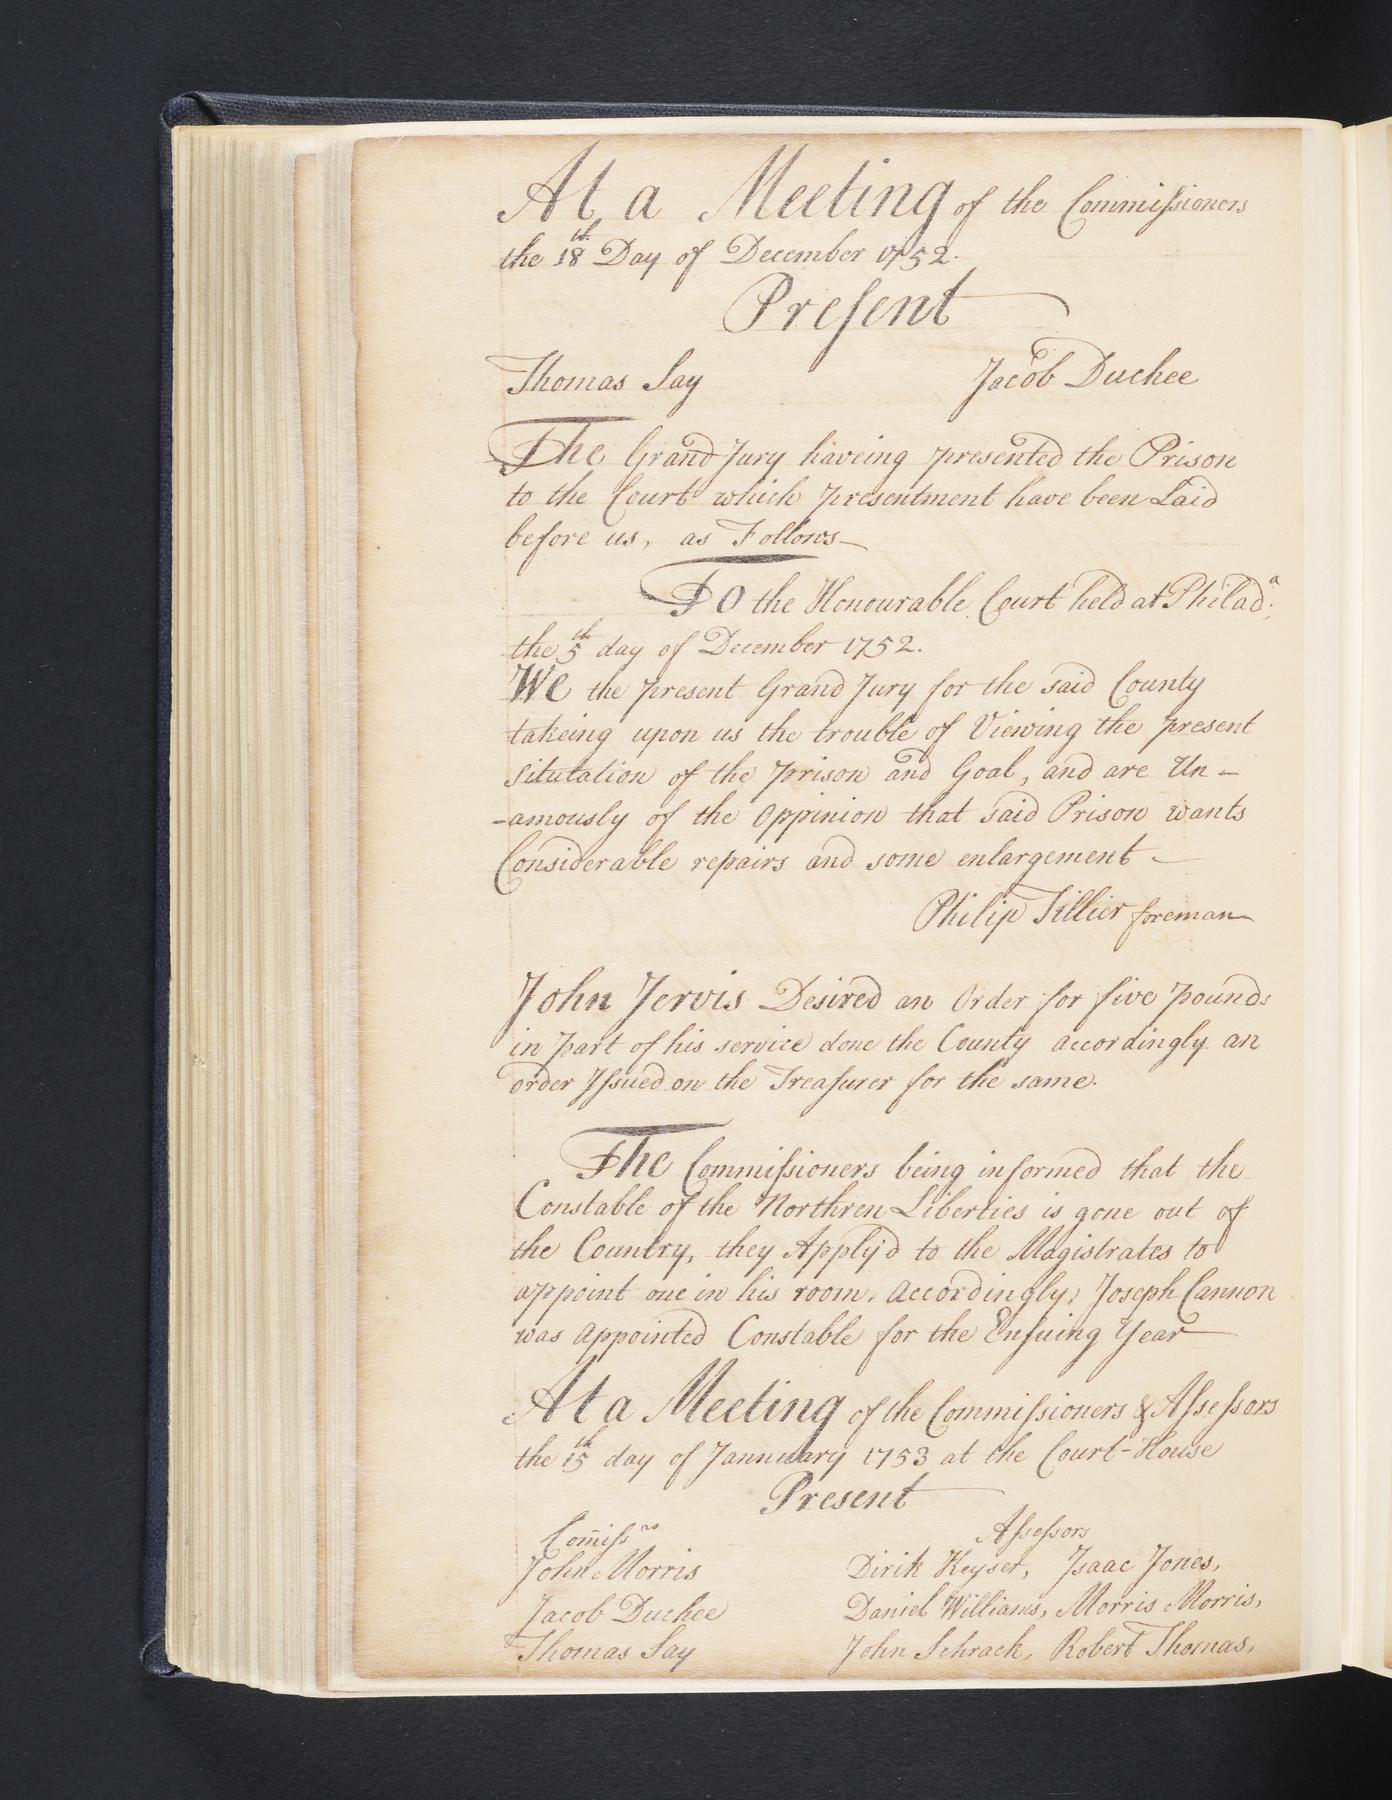 At a Meeting of the Commiſsioners
the 18th Day of December 1752.
Preſent
Thomas Say Jacob Duchee
The Grand Jury haveing presented the Prison
to the Court which presentment have been Laid
before us, as Follows
To the Honourable Court held at Philad:a
the 5th day of December 1752.
We the present Grand Jury for the said County
takeing upon us the trouble of Viewing the present
Situtation of the prison and Goal, and are Un-
-amously of the Oppinion that said Prison wants
Considerable repairs and some enlargement
Philip Tillier foreman
John Jervis Desired an Order for five pounds
in part of his service done the County accordingly an
order Iſsued on the Treaſurer for the same.
The Commiſsioners being informed that the
Constable of the Northren Liberties is gone out of
the Country, they Apply'd to the Magistrates to
appoint one in his room. Accordingly, Joseph Cannon
was appointed Constable for the Enſuing Year
At a Meeting of the Commiſsioners & Aſseſsors
the 15th day of Jannuary 1753 at the Court-House
Present
Com̄iſsrs Aſseſsors
John Morris Dirik Keyser, Isaac Jones,
Jacob Duchee Daniel Williams, Morris Morris,
Thomas Say John Schrack, Robert Thomas,